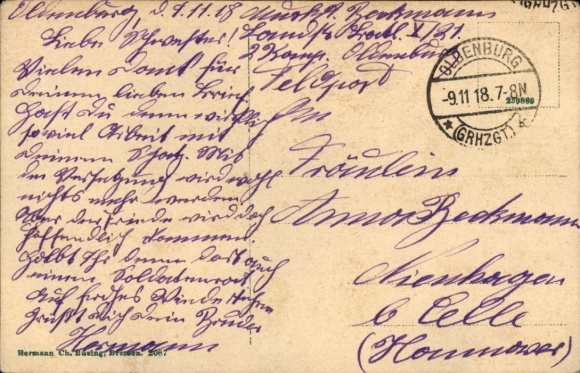 Oldenburg, d. 9.11.18
Liebe Schwester!
Vielen Dank für
Deinen lieben Brief
Hast Du denn wirklich
soviel Arbeit mit
Deinem Schatz. Mit
der Versetzung wird wohl
nichts mehr werden
Aber der Friede wird doch
hoffendlich kommen.
Habt Ihr denn dort auch
einen Soldatenrat
Auf frohes Wiedersehen
grüßt Dich Dein Bruder
Hermann
Musk. H. Beckmann
Landst. Batl. X/21.
2 Komp. Oldenburg
Feldpost
An
Fräulein
Anna Beckmann
Nienhagen
b Celle
(Hannover)
OLDENBURG
-9.11 18.7-8N
* (GRHZGT.) *
239889
Hermann Ch. Büsing, Bremen. 2087